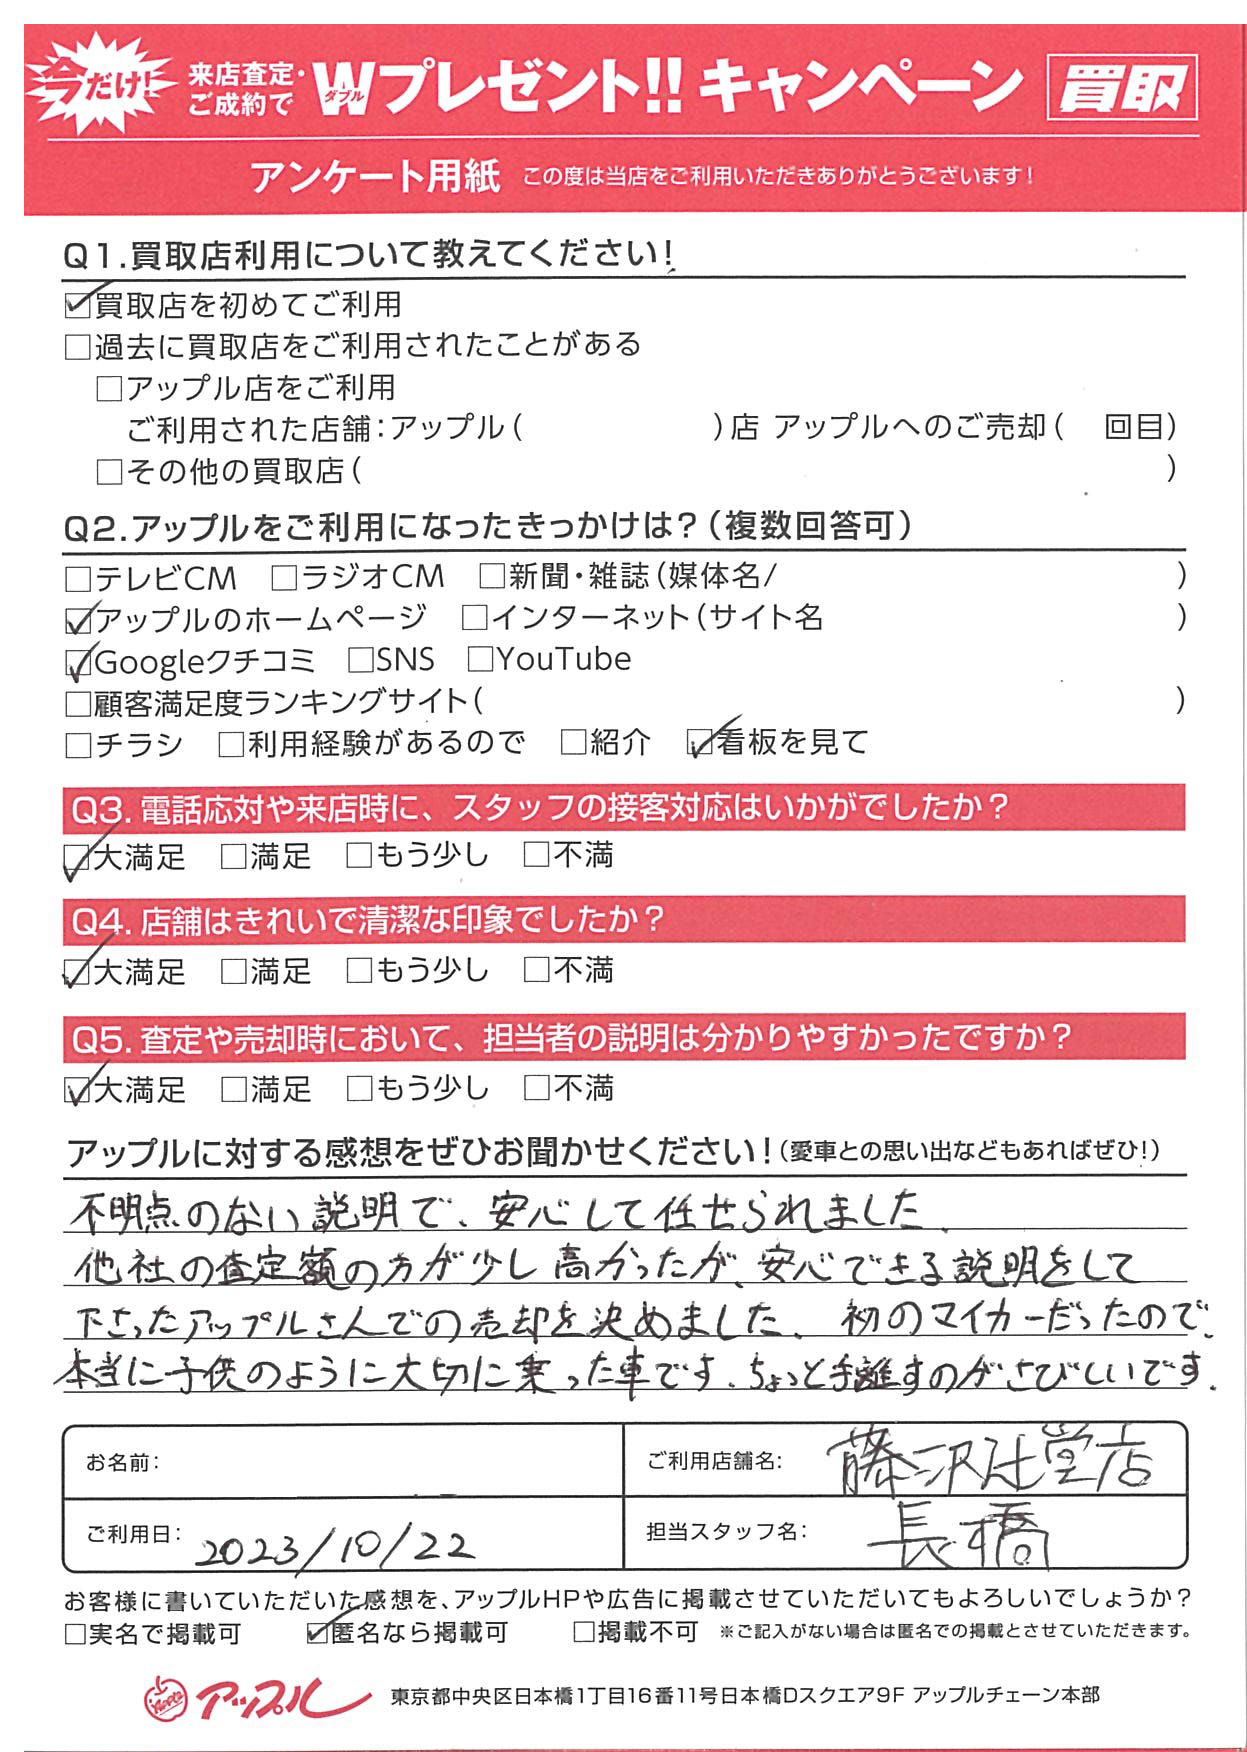 今だけ! 来店査定・ご成約で Wダブルプレゼント!! キャンペーン 買取
アンケート用紙 この度は当店をご利用いただきありがとうございます!
Q1.買取店利用について教えてください!
☑買取店を初めてご利用
□過去に買取店をご利用されたことがある
□アップル店をご利用
ご利用された店舗:アップル( )店 アップルへのご売却( 回目)
□その他の買取店( )
Q2.アップルをご利用になったきっかけは?(複数回答可)
□テレビCM □ラジオCM □新聞・雑誌(媒体名/ )
☑アップルのホームページ □インターネット(サイト名 )
☑Googleクチコミ □SNS □YouTube
□顧客満足度ランキングサイト( )
□チラシ □利用経験があるので □紹介 ☑看板を見て
Q3. 電話応対や来店時に、スタッフの接客対応はいかがでしたか?
☑大満足 □満足 □もう少し □不満
Q4. 店舗はきれいで清潔な印象でしたか?
☑大満足 □満足 □もう少し □不満
Q5. 査定や売却時において、担当者の説明は分かりやすかったですか?
☑大満足 □満足 □もう少し □不満
アップルに対する感想をぜひお聞かせください!(愛車との思い出などもあればぜひ!)
不明点のない説明で、安心して任せられました、
他社の査定額の方が少し高かったが、安心できる説明をして
下さったアップルさんでの売却を決めました、初のマイカーだったので、
本当に子供のように大切に乗った車です、ちょっと手離すのがさびしいです.
お名前: ご利用店舗名: 藤沢辻堂店
ご利用日: 2023/10/22 担当スタッフ名: 長橋
お客様に書いていただいた感想を、アップルHPや広告に掲載させていただいてもよろしいでしょうか?
□実名で掲載可 ☑匿名なら掲載可 □掲載不可 ※ご記入がない場合は匿名での掲載とさせていただきます。
Apple アップル 東京都中央区日本橋1丁目16番11号日本橋Dスクエア9F アップルチェーン本部